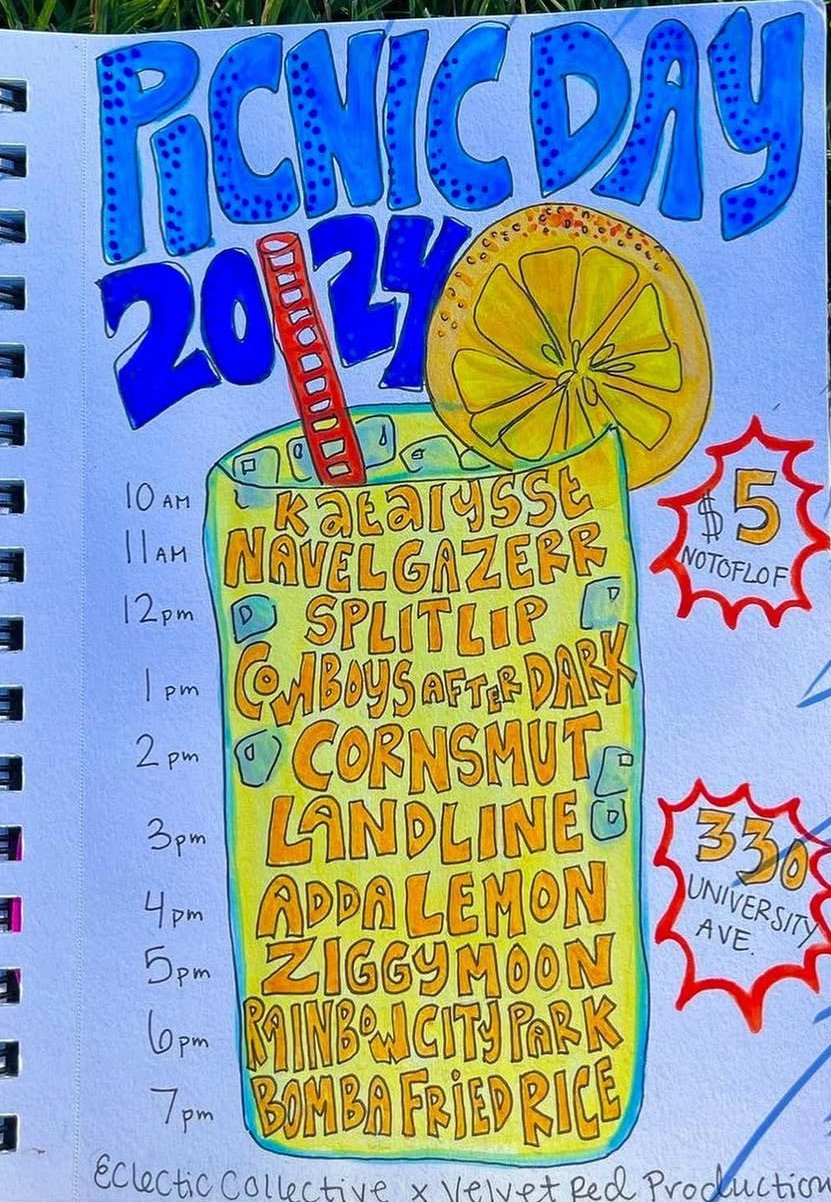 PiCNiC DAY
2024
10 AM katalysst
11 AM NAVELGAZERR
12 pm SPLITLIP
1 pm COWBOYS AFTER DARK
2 pm CORNSMUT
3pm LANDLINE
4pm ADDA LEMON
5pm ZIGGY MOON
6pm RAINBOW CITY PARK
7pm BOMBA FRiED RICE
$5
NOTOFLOF
330
UNIVERSITY
AVE.
Eclectic Collective x Velvet Red Production